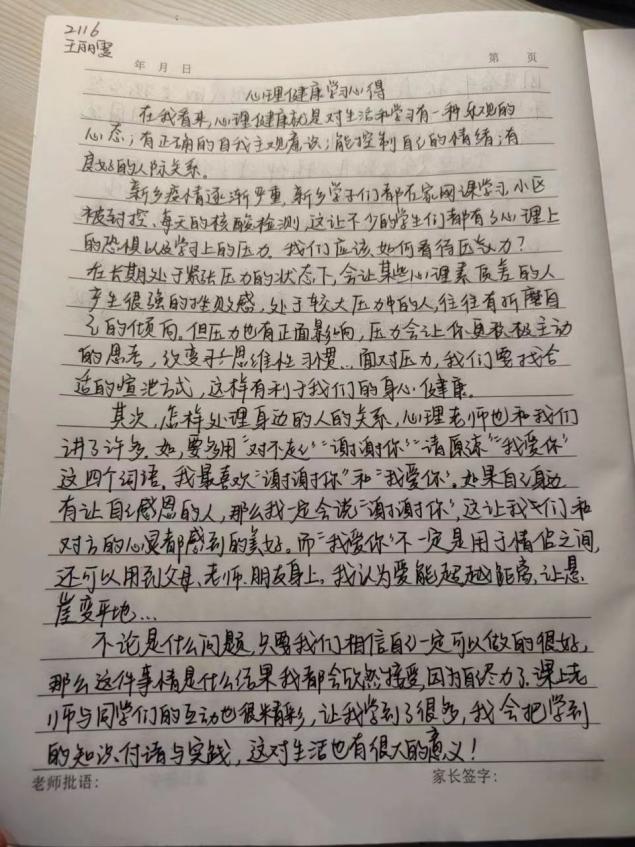 2116
王丽雯
年 月 日 第 页
心理健康学习心得
在我看来,心理健康就是对生活和学习有一种乐观的
心态;有正确的自我主观意识;能控制自己的情绪;有
良好的人际关系。
新乡疫情逐渐严重,新乡学子们都在家网课学习,小区
被封控、每天的核酸检测,这让不少的学生们都有了心理上
的恐惧以及学习上的压力。我们应该如何看待压力?
在长期处于紧张压力的状态下,会让某些心理素质差的人
产生很强的挫败感,处于较大压力中的人,往往有折磨自
己的倾向。但压力也有正面影响,压力会让你更积极主动
的思考,改变思维性习惯…面对压力,我们要找合
适的喧泄方式,这样有利于我们的身心健康。
其次,怎样处理身边的人的关系,心理老师也和我们
讲了许多。如,要多用“对不起”“谢谢你”“请原谅”“我爱你”
这四个词语。我最喜欢“谢谢你”和“我爱你”。如果自己身边
有让自己感恩的人,那么我一定会说“谢谢你”,这让我们和
对方的心灵都感到的美好。而“我爱你”不一定是用于情侣之间,
还可以用到父母、老师、朋友身上。我认为爱能超越距离,让悬
崖变平地…
不论是什么问题,只要我们相信自己一定可以做的很好,
那么这件事情是什么结果我都会欣然接受,因为自己尽力了。课上老
师与同学们的互动也很精彩,让我学到了很多,我会把学到
的知识付诸与实践,这对生活也有很大的意义!
老师批语: 家长签字: